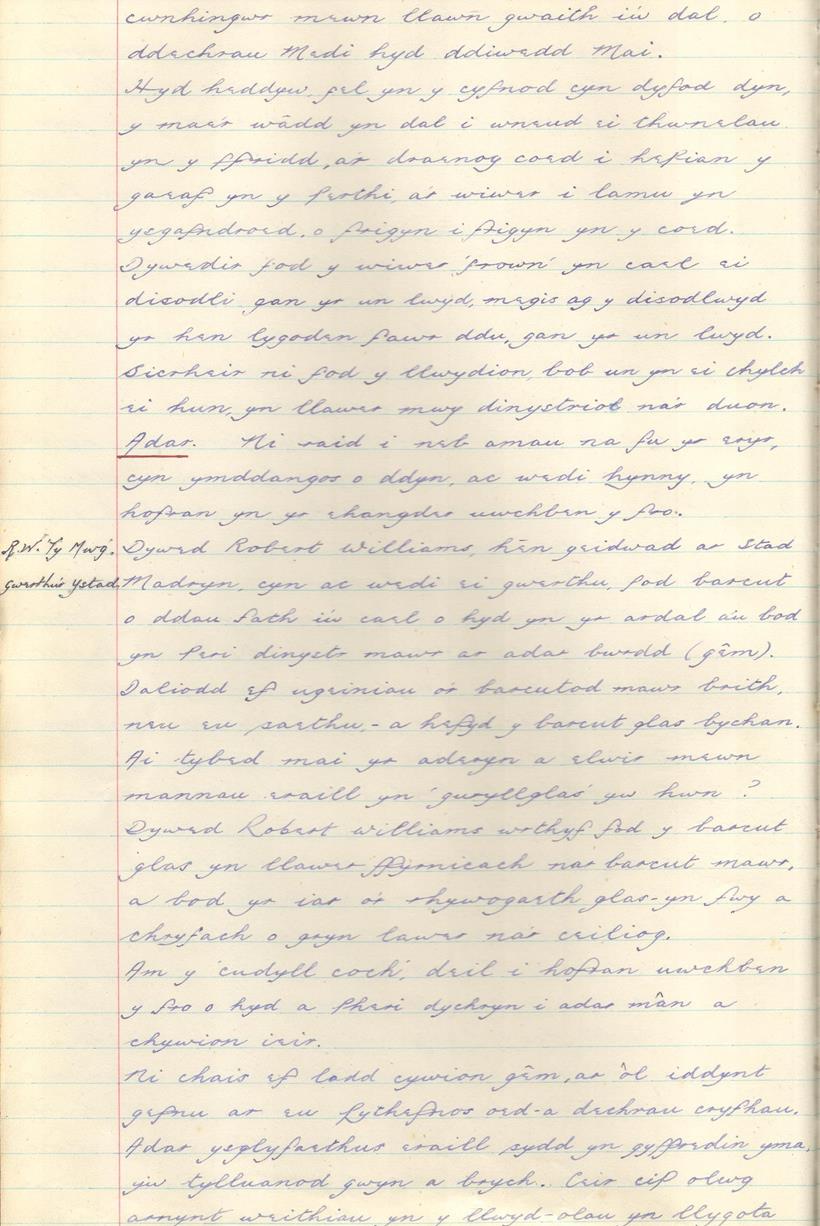 cwnhingwr mewn llawn gwaith iw dal. o
ddechrau Medi hyd ddiwedd Mai.
Hyd heddyw, fel yn y cyfnod cyn dyfod dyn,
y mae'r wâdd yn dal i wneud ei thwnelau
yn y ffridd, a'r draenog coed i hepian y
gaeaf yn y perthi, a'r wiwer i lamu yn
ysgafndroed, o frigyn i frigyn yn y coed.
Dywedir fod y wiwer 'frown' yn cael ei
disodli gan yr un lwyd, megis ag y disodlwyd
yr hen lygoden fawr ddu, gan yr un lwyd.
Sicrheir ni fod y llwydion, bob un yn ei chylch
ei hun, yn llawer mwy dinystriol na'r duon.
Adar. Ni raid i neb amau na fu yr eryr,
cyn ymddangos o ddyn, ac wedi hynny, yn
hofran yn yr ehangder uwchben y fro.
R.W. Ty Mwg. Dywed Robert Williams, hên geidwad ar Stad
Gwerthu'r Ystad. Madryn, cyn ac wedi ei gwerthu, fod barcut
o ddau fath i'w cael o hyd yn yr ardal a'u bod
yn peri dinystr mawr ar adar bwrdd (gêm).
Daliodd ef ugeiniau o'r barcutod mawr brith,
neu eu saethu, - a hefyd y barcut glas bychan.
Ai tybed mai yr aderyn a elwir mewn
mannau eraill yn 'gwryllglas' yw hwn ?
Dywed Robert Williams wrthyf fod y barcut
glas yn llawer ffyrnicach na'r barcut mawr,
a bod yr iar o'r rhywogaeth glas-yn fwy a
chryfach o gryn lawer na'r ceiliog.
Am y 'cudyll coch', deil i hofran uwchben
y fro o hyd a pheri dychryn i adar mân a
chywion ieir.
Ni chais ef ladd cywion gêm, ar ôl iddynt
gefnu ar eu pythefnos oed-a dechrau cryfhau.
Adar ysglyfaethus eraill sydd yn gyffredin yma,
yw tylluanod gwyn a brych. Ceir cip olwg
arnynt weithiau yn y llwyd-olau yn llygota